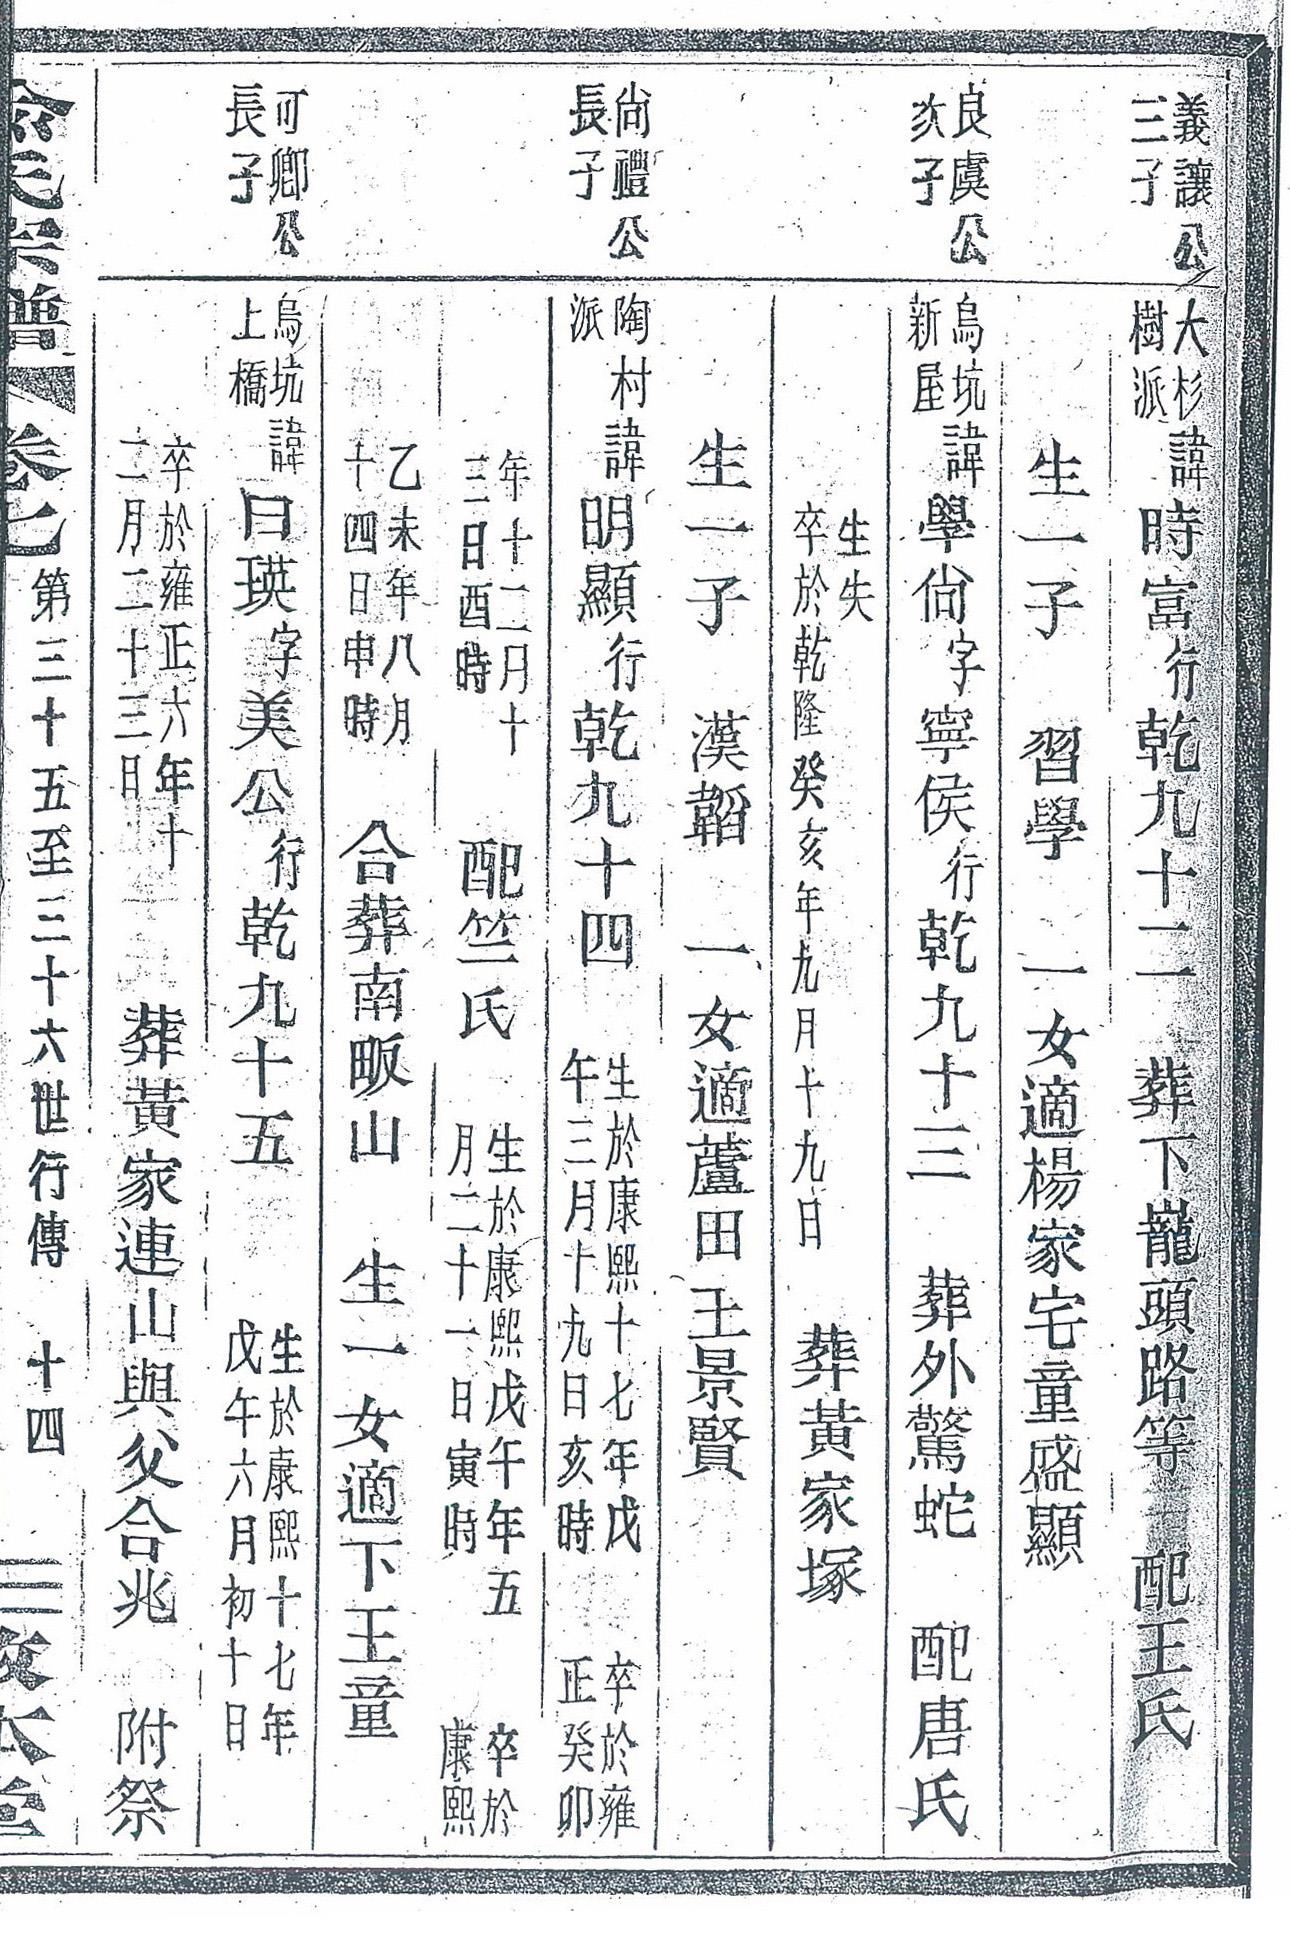 義讓公
三子
大杉
樹派
諱時富行乾九十二 葬下巃頭路等 配王氏
生一子 習學 一女適楊家宅童盛顯
良虞公
次子
烏坑
新屋
諱學尙字寧侯行乾九十三 葬外驚蛇 配唐氏
生失
卒於乾隆癸亥年九月十九日
葬黃家塚
生一子 漢韜 一女適蘆田王景賢
尙禮公
長子
陶村
派
諱明顯行乾九十四
生於康熙十七年戊
午三月十九日亥時
卒於雍
正癸卯
年十二月十
三日酉時
配竺氏
生於康熙戊午年五
月二十一日寅時
卒於
康熙
乙未年八月
十四日申時
合葬南畈山 生一女適下王童
可卿公
長子
烏坑
上橋
諱曰瑛字美公行乾九十五
生於康熙十七年
戊午六月初十日
卒於雍正六年十
二月二十三日
葬黃家連山與父合兆 附祭
氏宗譜 卷七 第三十五至三十六世行傳 十四 敦本堂